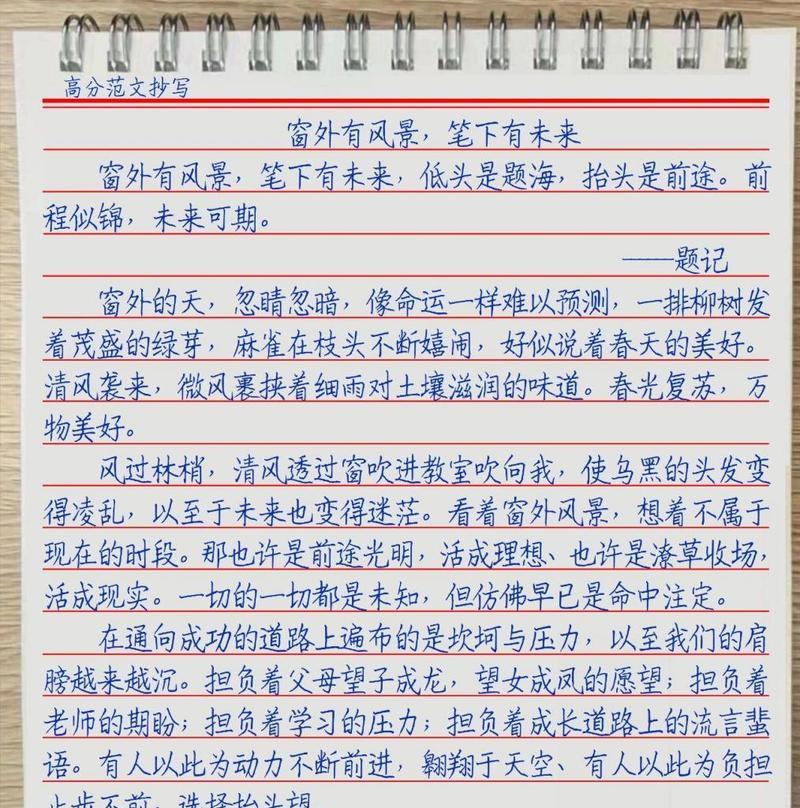 高分范文抄写
窗外有风景，笔下有未来
窗外有风景，笔下有未来，低头是题海，抬头是前途。前
程似锦，未来可期。
——题记
窗外的天，忽晴忽暗，像命运一样难以预测，一排柳树发
着茂盛的绿芽，麻雀在枝头不断嬉闹，好似说着春天的美好。
清风袭来，微风裹挟着细雨对土壤滋润的味道。春光复苏，万
物美好。
风过林梢，清风透过窗吹进教室吹向我，使乌黑的头发变
得凌乱，以至于未来也变得迷茫。看着窗外风景，想着不属于
现在的时段。那也许是前途光明，活成理想、也许是潦草收场，
活成现实。一切的一切都是未知，但仿佛早已是命中注定。
在通向成功的道路上遍布的是坎坷与压力，以至我们的肩
膀越来越沉。担负着父母望子成龙，望女成凤的愿望；担负着
老师的期盼；担负着学习的压力；担负着成长道路上的流言蜚
语。有人以此为动力不断前进，翱翔于天空、有人以此为负担
止步不前，选择抬头望